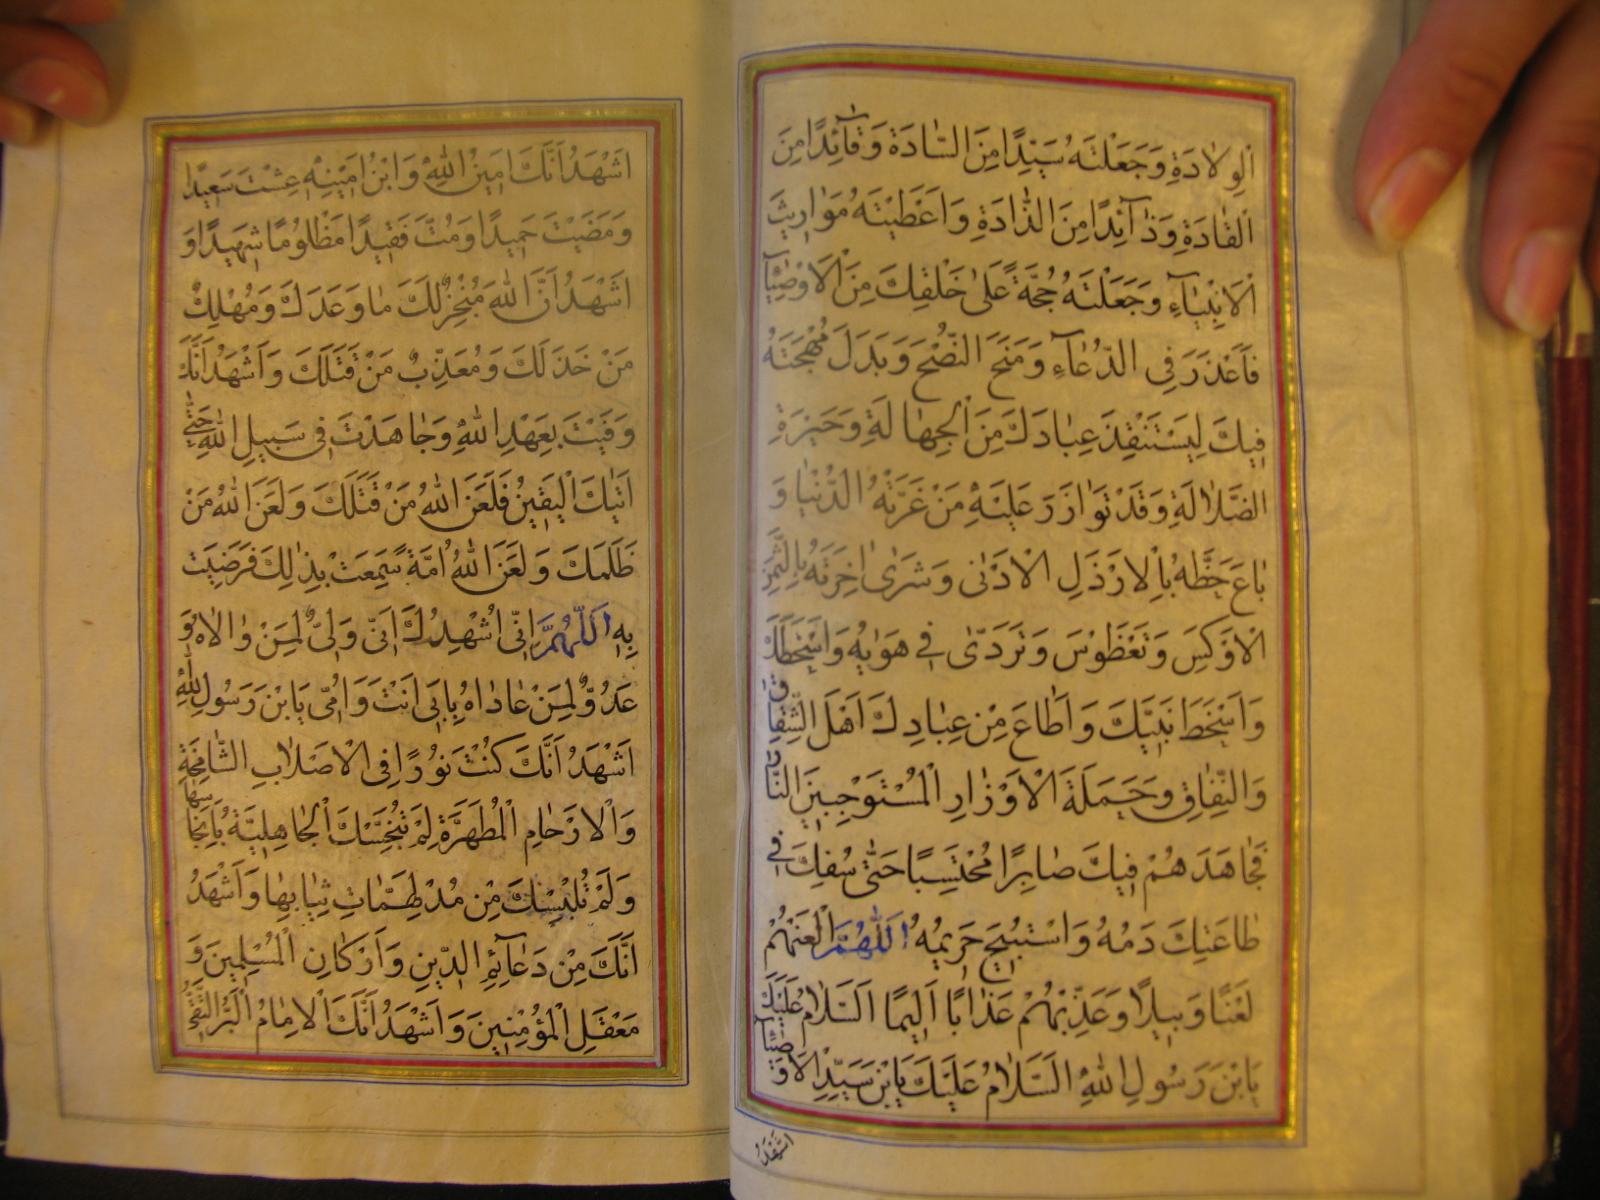 اَلْوِلادَةِ وَجَعَلْتَهُ سَيِّدًا مِنَ السّادَةِ وَقآئِدًا مِنَ
الْقادَةِ وَذآئِدًا مِنَ الذّادَةِ وَاَعْطَيْتَهُ مَوارِيثَ
الْاَنْبِيآءِ وَجَعَلْتَهُ حُجَّةً عَلىٰ خَلْقِكَ مِنَ الْاَوْصِيآءِ
فَاَعْذَرَ فِى الدُّعآءِ وَمَنَحَ النُّصْحَ وَبَذَلَ مُهْجَتَهُ
فِيكَ لِيَسْتَنْقِذَ عِبادَكَ مِنَ الْجَهالَةِ وَحَيْرَةِ
الضَّلالَةِ وَقَدْ تَوازَرَ عَلَيْهِ مَنْ غَرَّتْهُ الدُّنْيا وَ
باعَ حَظَّهُ بِالْاَرْذَلِ الْاَدْنىٰ وَشَرىٰ اٰخِرَتَهُ بِالثَّمَنِ
الْاَوْكَسِ وَتَغَطْوَسَ وَتَرَدّىٰ فِى هَوٰيهُ وَاَسْخَطَكَ
وَاَسْخَطَ نَبِيَّكَ وَاَطاعَ مِنْ عِبادِكَ اَهْلَ الشِّقاقِ
وَالنِّفاقِ وَحَمَلَةَ الْاَوْزارِ الْمُسْتَوْجِبِينَ النّارَ
فَجاهَدَهُمْ فِيكَ صابِرًا مُحْتَسِبًا حَتّىٰ سُفِكَ فِى
طاعَتِكَ دَمُهُ وَاسْتُبِيحَ حَرِيمُهُ اَللّٰهُمَّ الْعَنْهُمْ
لَعْنًا وَبِيلًا وَعَذِّبْهُمْ عَذابًا اَلِيمًا اَلسَّلامُ عَلَيْكَ
يَابْنَ رَسُولِ اللهِ السَّلامُ عَلَيْكَ يَابْنَ سَيِّدِ الْاَوْصِيآءِ
اَشْهَدُ
اَشْهَدُ اَنَّكَ اَمِينُ اللهِ وَابْنُ اَمِينِهِ عِشْتَ سَعِيدًا
وَمَضَيْتَ حَمِيدًا وَمُتَّ فَقِيدًا مَظْلُومًا شَهِيدًا وَ
اَشْهَدُ اَنَّ اللهَ مُنْجِزٌ لَكَ ما وَعَدَكَ وَمُهْلِكٌ
مَنْ خَذَلَكَ وَمُعَذِّبٌ مَنْ قَتَلَكَ وَاَشْهَدُ اَنَّكَ
وَفَيْتَ بِعَهْدِ اللهِ وَجاهَدْتَ فِى سَبِيلِ اللهِ حَتّىٰ
اَتٰيكَ الْيَقِينُ فَلَعَنَ اللهُ مَنْ قَتَلَكَ وَلَعَنَ اللهُ مَنْ
ظَلَمَكَ وَلَعَنَ اللهُ اُمَّةً سَمِعَتْ بِذٰلِكَ فَرَضِيَتْ
بِهِ اَللّٰهُمَّ اِنِّى اُشْهِدُكَ اَنِّى وَلِىٌّ لِمَنْ والاهُ وَ
عَدُوٌّ لِمَنْ عاداهُ بِاَبِى اَنْتَ وَاُمِّى يَابْنَ رَسُولِ اللهِ
اَشْهَدُ اَنَّكَ كُنْتَ نُورًا فِى الْاَصْلابِ الشّامِخَةِ
وَالْاَرْحامِ الْمُطَهَّرَةِ لَمْ تُنَجِّسْكَ الْجاهِلِيَّةُ بِاَنْجاسِها
وَلَمْ تُلْبِسْكَ مِنْ مُدْلَهِمّاتِ ثِيابِها وَاَشْهَدُ
اَنَّكَ مِنْ دَعآئِمِ الدِّينِ وَاَرْكانِ الْمُسْلِمِينَ وَ
مَعْقِلِ الْمُؤْمِنِينَ وَاَشْهَدُ اَنَّكَ الْاِمامُ الْبَرُّ التَّقِىُّ